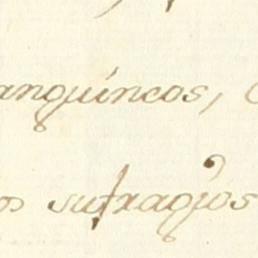 anguineos,
os sufragios